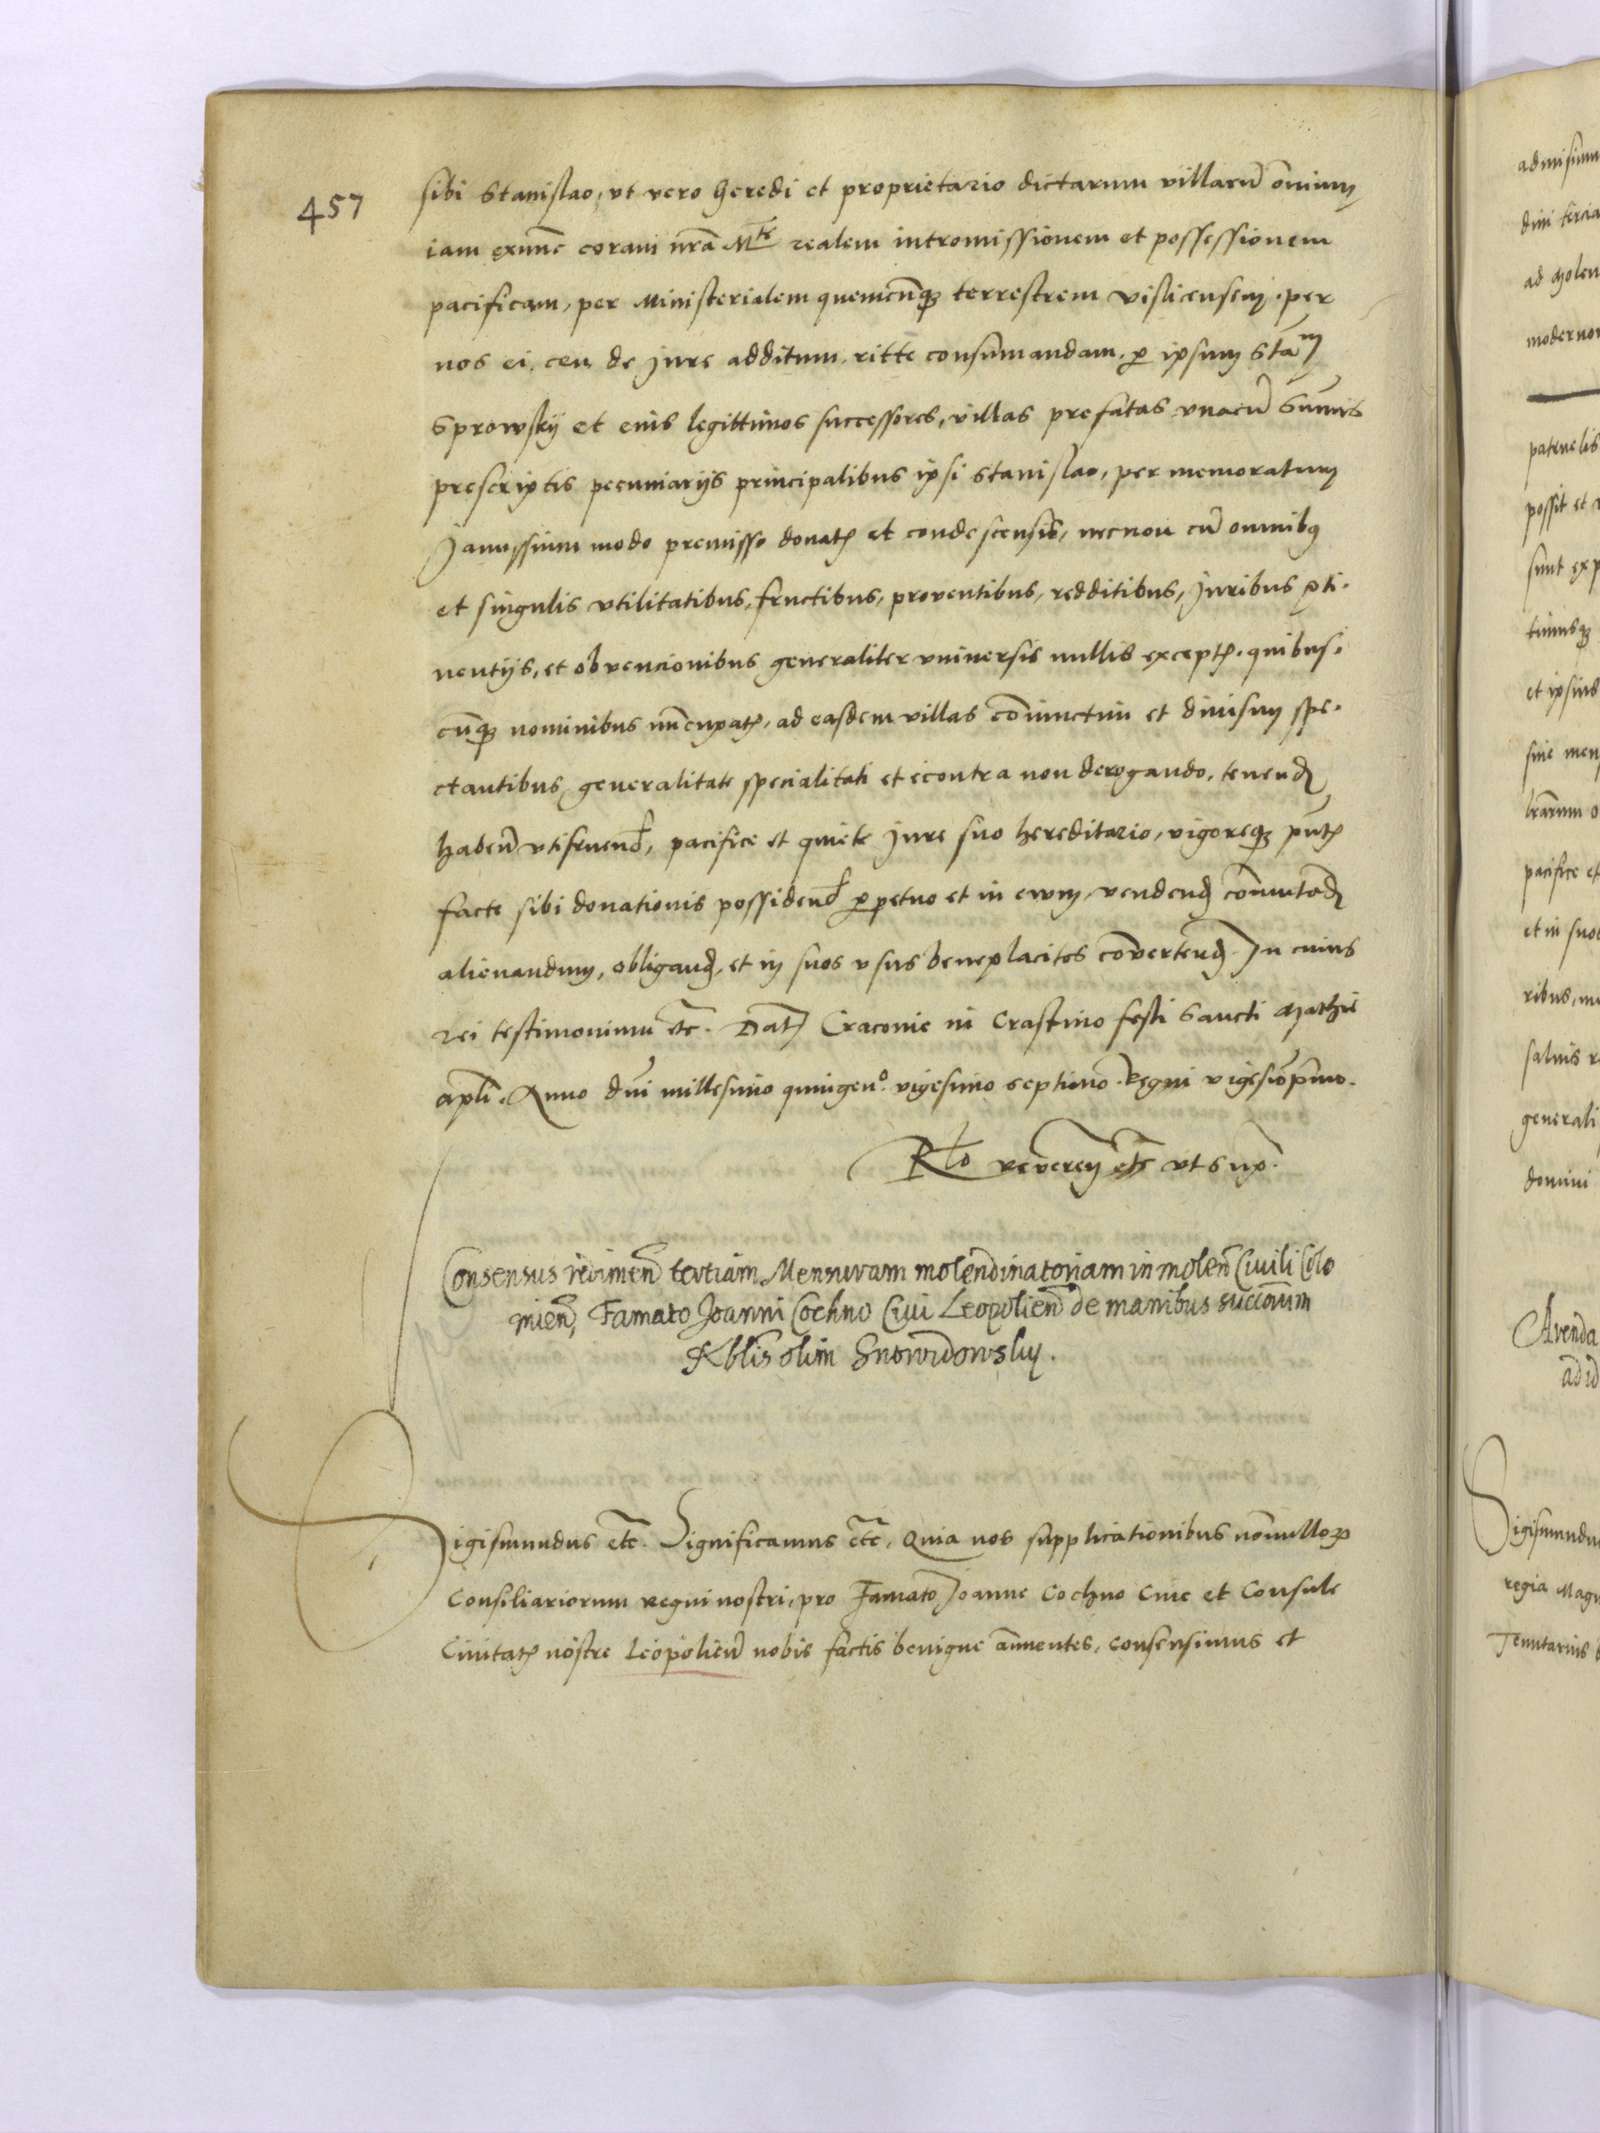 457
sibi Stanislao, ut vero heredi et proprietario dictarum villarū omnium
iam exnūc coram nrā Mte realem intromissionem et possessionem
pacificam, per Ministerialem quemcūqȝ terrestrem visliciensem. per
nos ei. ceu de Jure additum. ritte consumandam. p ipsum Stam
Sprowsky et eius legittimos successores, villas prefatas unacū Sumis
prescriptis pecuniarijs principalibus ipsi Stanislao, per memoratum
Janussium modo premisso donatꝭ et condescensis, necnon cū omnibꝯ
et singulis utilitatibus, fructibus, proventibus, redditibus, Juribus pti.
nentijs, et obvencionibus generaliter universis nullis exceptꝭ. quibus.
cūqȝ nominibus nūcupatꝭ, ad easdem villas coniunctim et divisim spe.
ctantibus, generalitate specialitati et econtra non derogando. tenendꝭ
habend utifruend, pacifice et quiete Jure suo hereditario, vigoreqȝ pntꝭ
facte sibi donationis possidend ppetuo et in evum, vendendꝭ comutādꝭ
alienandum, obligandꝭ, et in suos usus beneplacitos convertendꝭ. In cuius
rei testimonium etc. Datꝭ Cracovie in Crastino festi Sancti Mathie
apli. Anno dni millesimo quingeno. vigesimo septimo. Regni vigesiopmo.
Rlo reverenꝭ etc ut sup.
Consensus redimen tertiam Mensuram molendinatoriam in molen Civili Colo
mien, Famato Joanni Cochno Civi Leopolien de manibus succorum
Nblis olim Snowidowsky.
Sigismundus etc. Significamus etc. Quia nos supplicationibus nonulloꝝ
Consiliariorum regni nostri, pro Famato Joanne Cochno Cive et Consule
Civitatꝭ nostre Leopolien nobis factis benigne annuentes, consensimus et
dini tercia
ad molen
patruelis
possit et
sunt exp
timusqȝ
et ipsius
pacifice et
et in suos
ribus,
salvis
generali
domini
Arenda
ad id
Sigismundus
regia Mag
Tenutarius